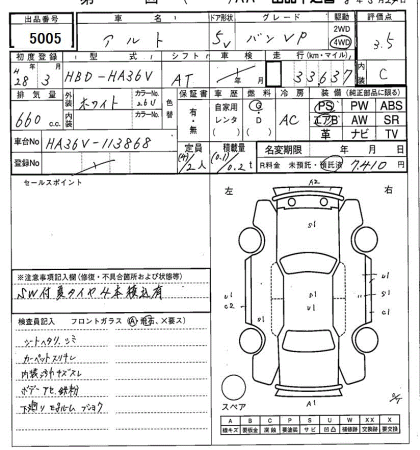 出品番号 車名 ドア形状 グレード 駆動 評価点
5005 アルト 5V バンVP 2WD 4WD 3.5
初度登録 型式 シフト 車検 走行(km・マイル) 内装
H28 3 HBD-HA36V AT 33,637 C
排気量 外装 ホワイト カラーNo. 26U 色替 保証書 車歴 燃料 冷房 装備(純正部品に限る)
660 c.c. 内装 カラーNo. 有・無 自家用 レンタ G・D AC PS PW ABS
エアB AW SR
革 ナビ TV
車台No HA36V-113868 定員 積載量 名変期限 年 月 日
登録No (4)/2人 (0.1)/0.2t R料金 未預託・預託済 7,410円
セールスポイント
左 右
A2
S1
S1
U1
U1
C2
U1
S1
A1
スペア
※注意事項記入欄(修復・不具合箇所および状態等)
SW付 夏タイヤ4本積込有
検査員記入 フロントガラス(A、飛石、×要ス)
シートヘタリ、シミ
カーペットスリキレ
ボデーアセ 鉄粉
A B C P S U W X XX X
線キズ 要板金 腐蝕 要塗装 サビ 凹凸 補修跡 交換跡 要交換